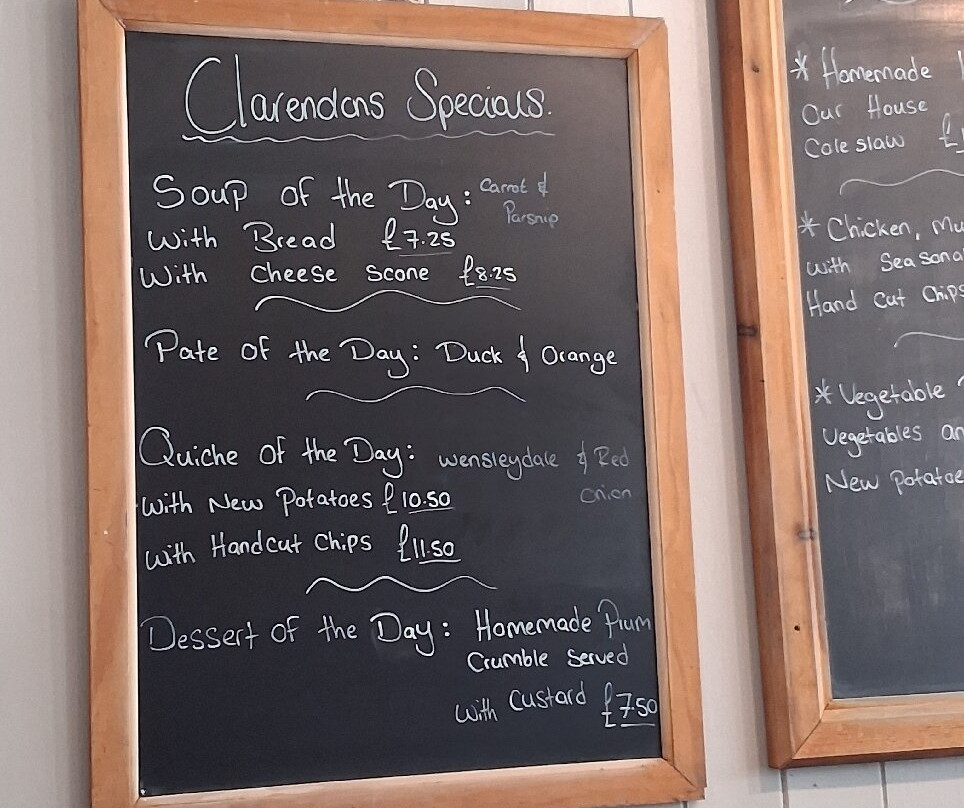 Clarendons Specials.
Soup of the Day: Carrot &
Parsnip
With Bread £7.25
With Cheese Scone £8.25
Pate of the Day: Duck & Orange
Quiche of the Day: Wensleydale & Red
onion
With New Potatoes £10.50
With Handcut Chips £11.50
Dessert of the Day: Homemade Plum
Crumble Served
with Custard £7.50
* Homemade
Our House
Coleslaw £
* Chicken, Mu
with Seasona
Hand Cut Chips
* Vegetable
Vegetables an
New Potatoe